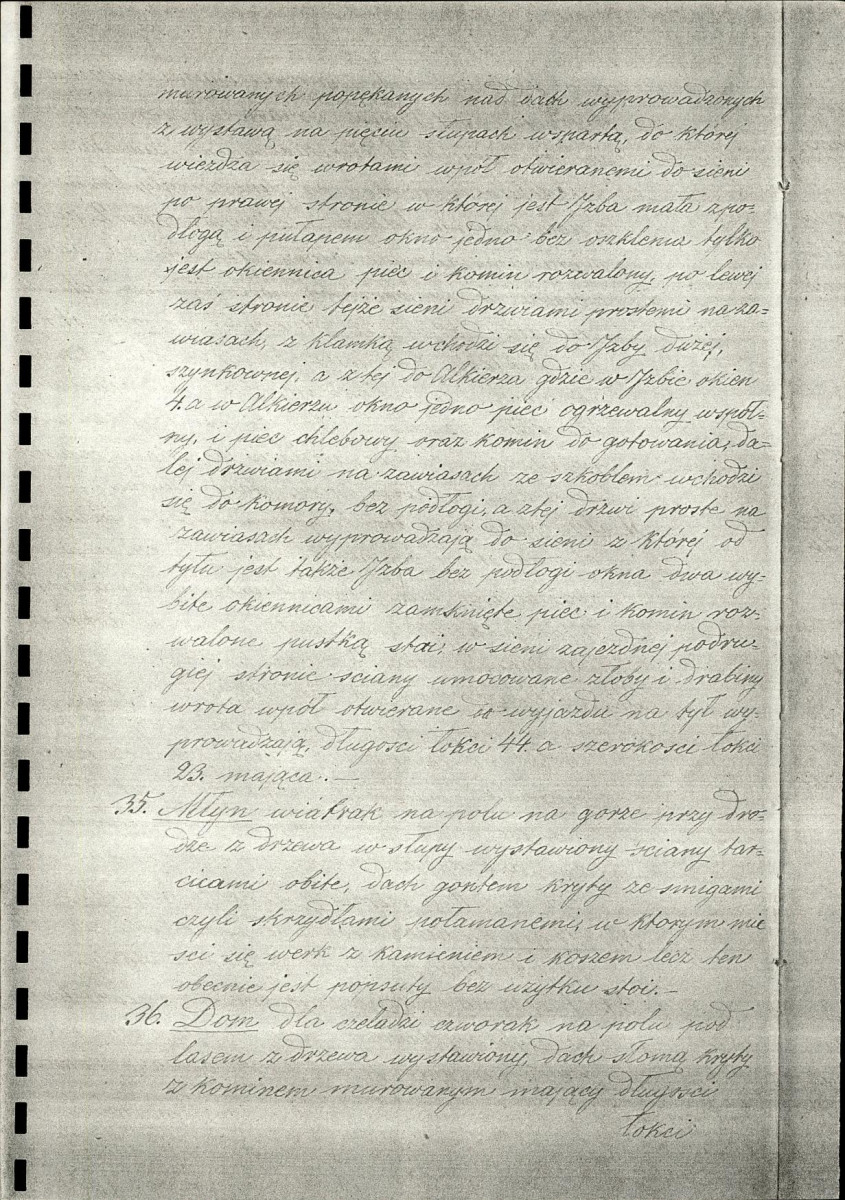 murowanych popękanych nad dach wyprowadzonych
z wystawą na pięciu słupach wspartą, do której
wieżdza się wrotami wpół otwieranemi do sieni
po prawej stronie w której jest Izba mała z po-
dłogą i pułapem okno jedno bez oszklenia tylko
jest okiennica piec i komin rozwalony, po lewej
zaś stronie tejże sieni drzwiami prostemi na za-
wiasach, z klamką wchodzi się do Izby dużej,
szynkownej, a z tej do Alkierza gdzie w Izbie okien
4. a w Alkierzu okno jedno piec ogrzewalny wspól-
ny, i piec chlebowy oraz komin do gotowania, da-
lej drzwiami na zawiasach ze szkoblem wchodzi
się do komory, bez podłogi, a z tej drzwi proste na
zawiasach wyprowadzają do sieni z której od
tyłu jest także Izba bez podłogi okna dwa wy-
bite okiennicami zamknięte piec i komin roz-
walone pustką stoi, w sieni zajezdnej po dru-
giej stronie sciany umocowane złoby i drabiny
wrota wpół otwierane do wyjazdu na tył wy-
prowadzają, długosci łokci 44. a szerokosci łokci
23. mająca. —
35. Młyn wiatrak na polu na gorze przy dro-
dze z drzewa w słupy wystawiony sciany tar-
cicami obite, dach gontem kryty ze smigami
czyli skrzydłami połamanemi, w ktorym mie
sci się werk z kamieniem i koszem lecz ten
obecnie jest popsuty bez uzytku stoi. —
36. Dom dla czeladzi czworak na polu pod
lasem z drzewa wystawiony, dach słomą kryty
z kominem murowanym mający długosci
łokci